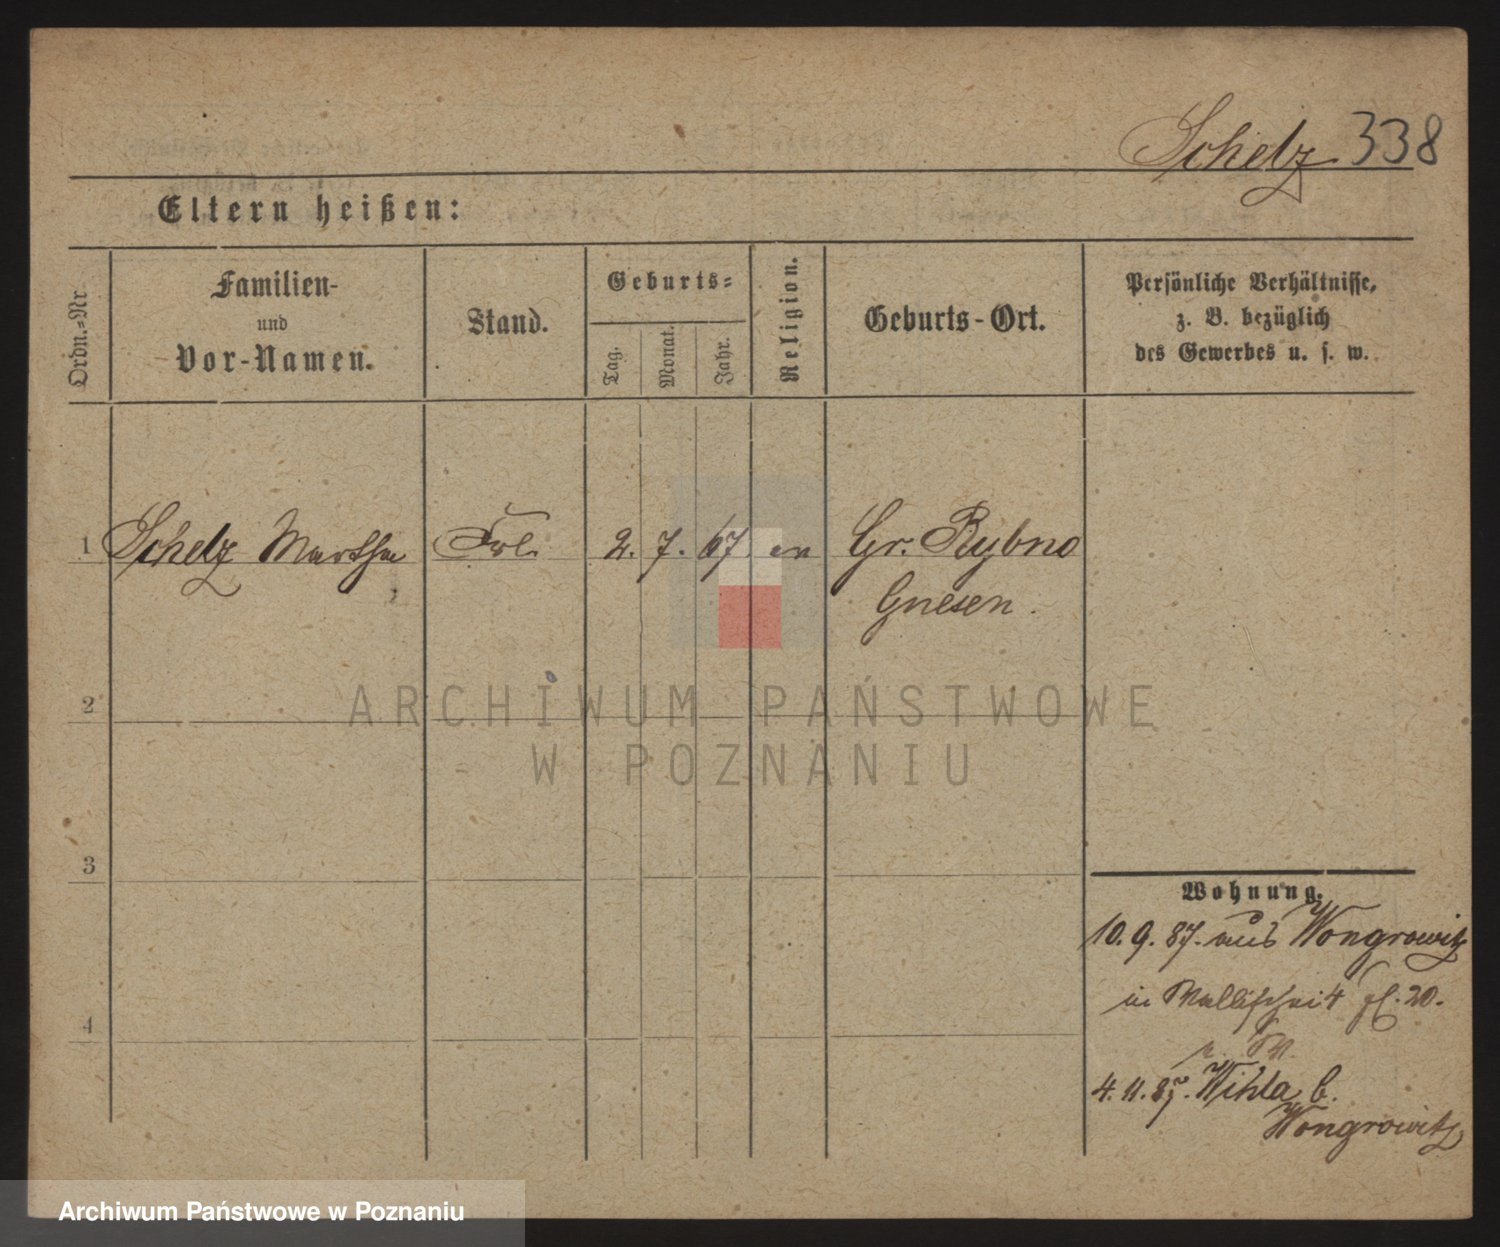 Schelz 338
Eltern heißen:
Ordn.=Nr.
Familien-
und
Vor-Namen.
Stand.
Geburts=
Tag.
Monat.
Jahr.
Religion.
Geburts-Ort.
Persönliche Verhältnisse,
z. B. bezüglich
des Gewerbes u. s. w.
1 Schelz Martha Frl. 2. 7. 67 ev Gr. Rybno
Gnesen.
2
3
4
Wohnung.
10. 9. 87. aus Wongrowitz
in Wallischei 4 20.
4. 11. 87. Wihla b.
Wongrowitz
ARCHIWUM PAŃSTWOWE
W POZNANIU
Archiwum Państwowe w Poznaniu